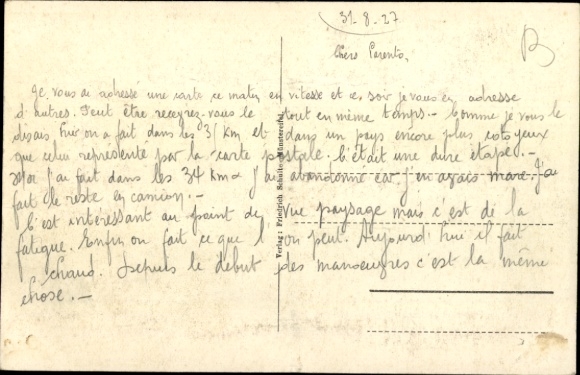 31-8-27
B
Chers Parents,
Je vous ai adressé une carte ce matin en vitesse et ce soir je vous en adresse
d'autres. Peut être recevrez-vous le tout en même temps.- Comme je vous le
disais hier on a fait dans les 31 km et dans un pays encore plus côteyeux
que celui représenté par la carte postale. C'était une dure étape.-
Moi j'ai fait dans les 34 km j'ai abandonné car j'en avais marre. J'ai
fait le reste en camion.-
C'est intéressant au point de vue paysage mais c'est de la
fatigue. Enfin on fait ce que l'on peut. Aujourd'hui il fait
chaud. Depuis le début des manoeuvres c'est la même
chose.-
Verlag: Friedrich Schulte, Münstereifel